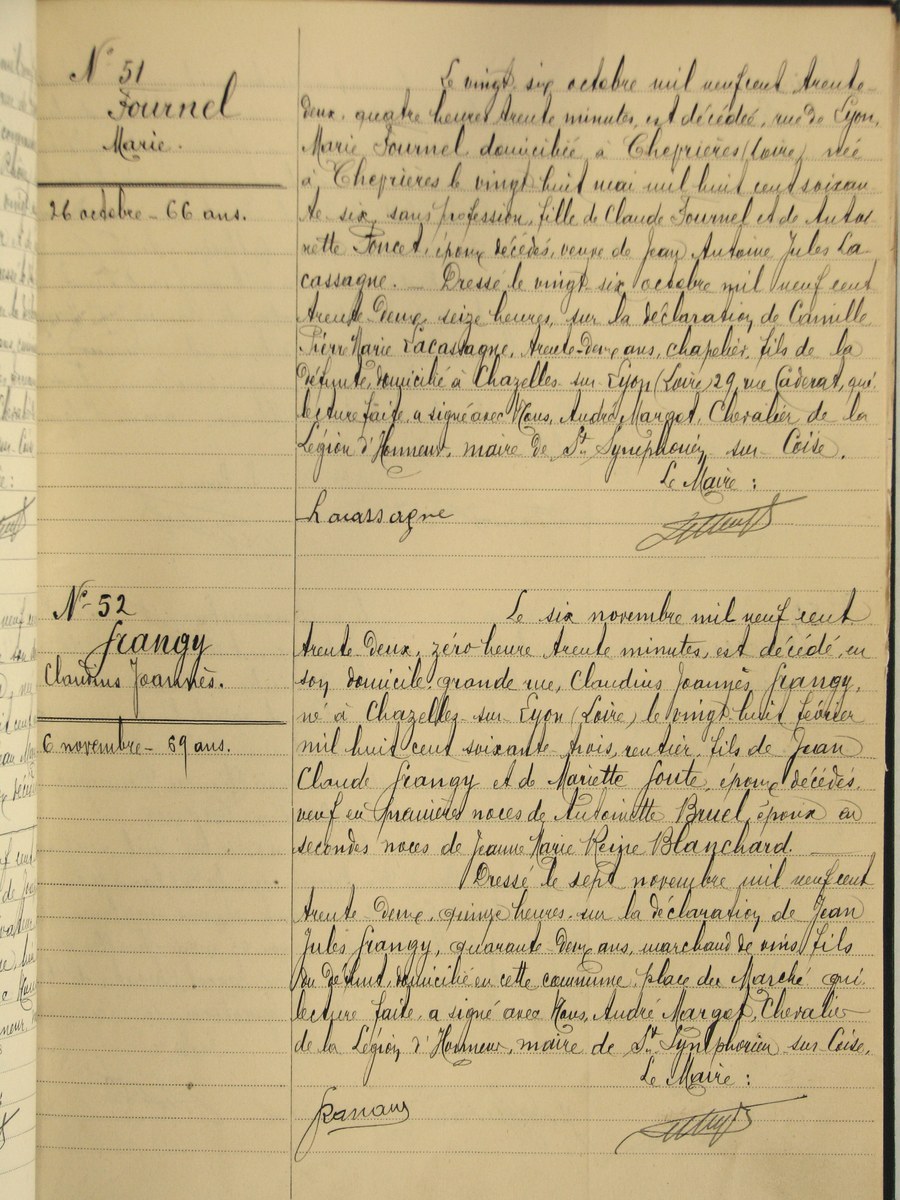 N° 51
Fournel
Marie.
26 octobre - 66 ans.
Le vingt six octobre mil neuf cent trente-
deux, quatre heures trente minutes, est décédée, rue de Lyon,
Marie Fournel domiciliée à Cheprières (Loire) née
à Cheprières le vingt huit mai mil huit cent soixan
te six, sans profession, fille de Claude Fournel et de Antoi-
nette Poncet, époux décédés, veuve de Jean Antoine Jules La-
cassagne. — Dressé le vingt six octobre mil neuf cent
trente deux, seize heures, sur la déclaration de Camille
Pierre Marie Lacassagne, trente-deux ans, chapelier, fils de la
défunte, domicilié à Chazelles-sur-Lyon (Loire) 29, rue Caderat, qui
lecture faite, a signé avec Nous, André Margot, Chevalier de la
Légion d'Honneur, maire de St Symphorien sur Coise.
Le Maire :
Lacassagne
N° 52
Grangy
Claudius Joannès.
6 novembre - 69 ans.
Le six novembre mil neuf cent
trente deux, zéro heure trente minutes, est décédé, en
son domicile, grande rue, Claudius Joannès Grangy,
né à Chazelles-sur-Lyon (Loire) le vingt huit février
mil huit cent soixante trois, rentier, fils de Jean
Claude Grangy et de Mariette Goute, époux décédés,
veuf en premières noces de Antoinette Bruel, époux en
secondes noces de Jeanne Marie Reine Blanchard. —
Dressé le sept novembre mil neuf cent
trente deux, quinze heures, sur la déclaration de Jean
Jules Grangy, quarante-deux ans, marchand de vins, fils
du défunt, domicilié en cette commune, place du Marché qui,
lecture faite, a signé avec Nous, André Margot, Chevalier
de la Légion d'Honneur, maire de St Symphorien sur Coise.
Le Maire :